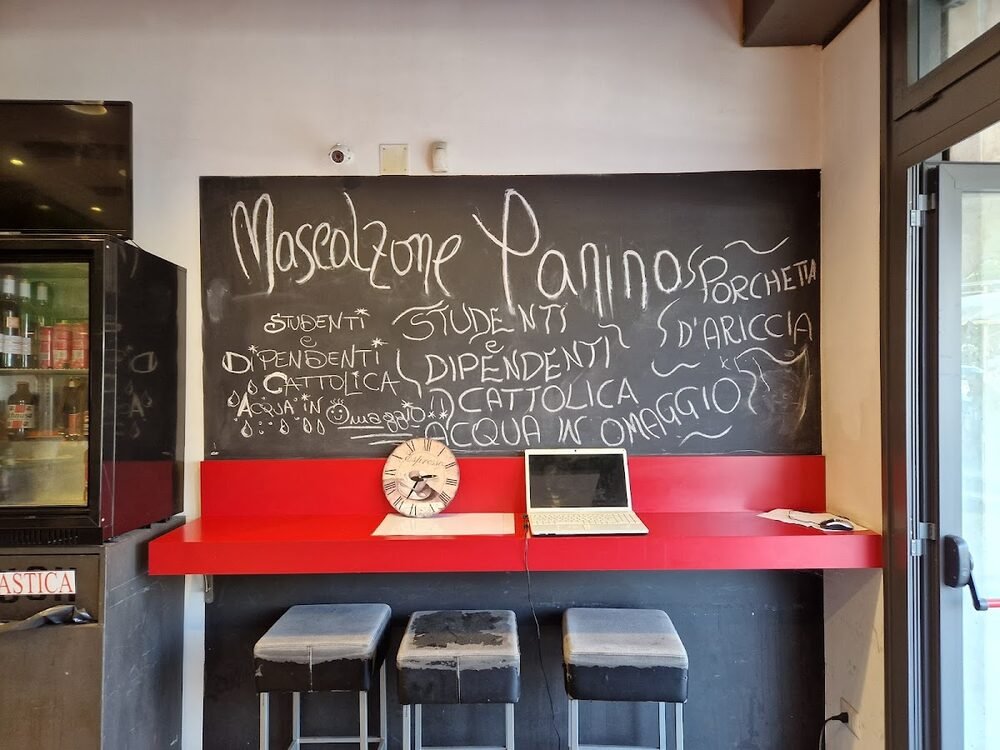 Mascalzone Panino
PORCHETTA
D'ARICCIA
STUDENTI
e
DIPENDENTI
CATTOLICA
ACQUA IN Omaggio
STUDENTI
e
DIPENDENTI
CATTOLICA
ACQUA IN OMAGGIO
Espresso
ASTICA